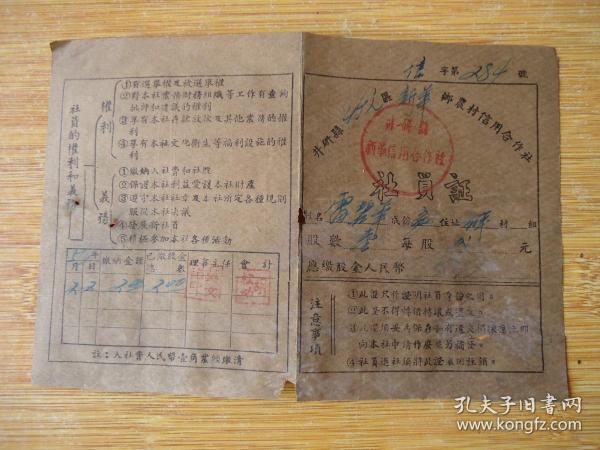 信字第254號
井研縣 區新華鄉農村信用合作社
井研縣
新華信用合作社
社員証
姓名雷 成份 住址 村 組
股數 每股 元
應繳股金人民幣
注意事項
①此證只作證明社員身份之用。
②此證不得轉借轉讓或遺失。
向本社申請作廢後另補發。
④社員退社採將此證收回註銷。
社員的權利和義務
權利
①有選舉權及被選舉權
②對本社業務財務組織等工作有查詢
批評和建議的權利
③享有本社存款放款及其他業務的權利
④享有本社文化衛生等福利設施的權
利
義務
①繳納入社費和社股
②保證本社利益愛護本社財產
③遵守本社社章及本社所定各種規則
服從本社決議
④發展新社員
⑤積極參加本社各種活動
年 月 日 繳納金額 已繳股金總數 理事主任 會計
2 2 200 200
註：入社費人民幣壹角業經繳清
孔夫子旧书网
www.kongfz.com